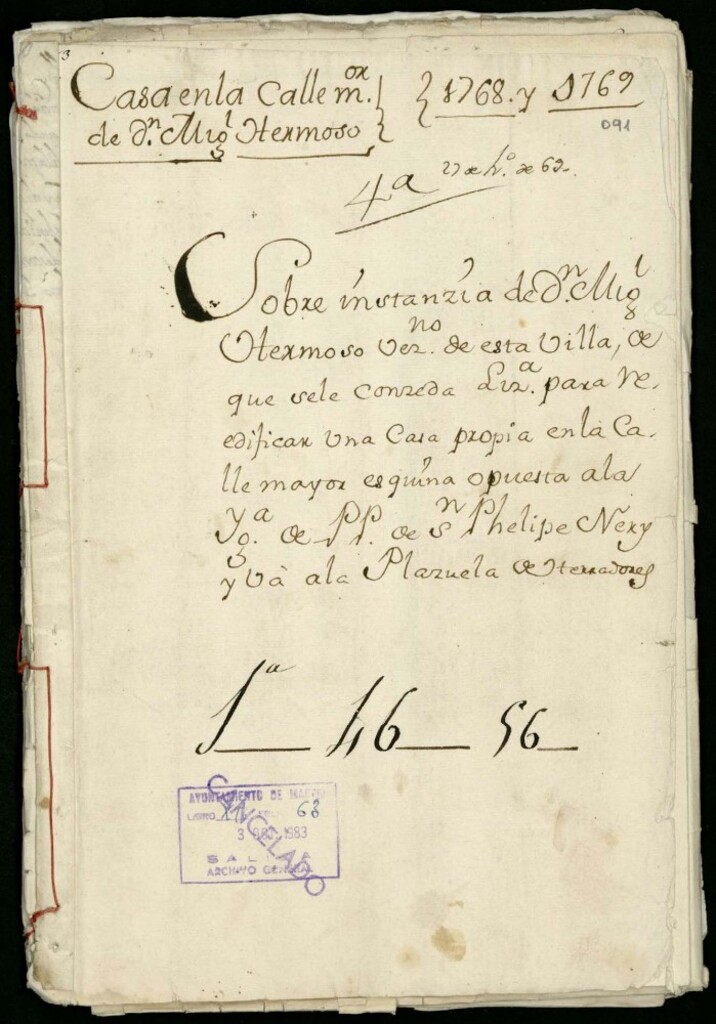 3
Casa en la Calle m.or } { 1768. y 1769
de Dn. Migl Hermoso }
091
4a 27 de h.o de 69.
Sobre instanzia de Dn. Migl
Hermoso vez.no de esta Villa, de
que sele conzeda Liz.a para re-
edificar una Casa propia en la Ca-
lle mayor esquina opuesta ala
Yg.a de PP. de Sn Phelipe Nery
y và ala Plazuela de Herradores
1a 46 56
AYUNTAMIENTO DE MADRID
LIBRO 63
3 1983
SALIDA
ARCHIVO GENERAL
CANCELADO